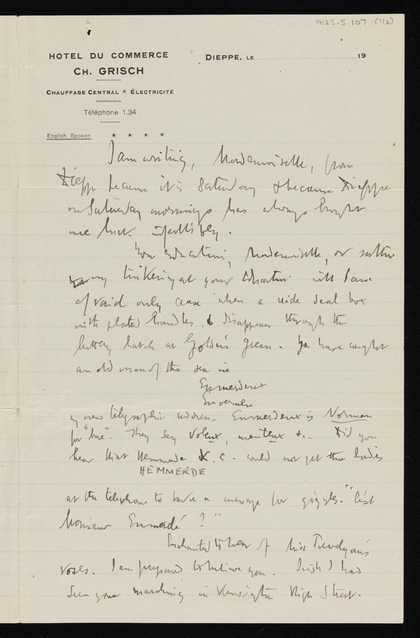 HOTEL DU COMMERCE
CH. GRISCH
CHAUFFAGE CENTRAL * ÉLECTRICITÉ
Téléphone 1.34
English Spoken
DIEPPE, LE 19
I am writing, Mademoiselle, from
Dieppe because it is Saturday & because Dieppe
on Saturday mornings has always brought
me luck.
Your education, Mademoiselle, or rather
my tinkering at your education will I am
afraid only cease when a wide deal box
with plated handles disappears through the
hatch at Golders Green. You have caught
an old man of the sea in
Enmerdeux
my own telegraphic address. Enmerdeux is Norman
for "eur". They say voleux, menteux &c. Did you
hear that Hemmerde K.C. could not get the ladies
HEMMERDE
at the telephone to take a message for giggles. "C'est
Monsieur Enmerdé?"
Enchanted to hear of Miss Trevelyan's
roses. I am prepared to believe you. I wish I had
seen your marching in Kensington High Street.